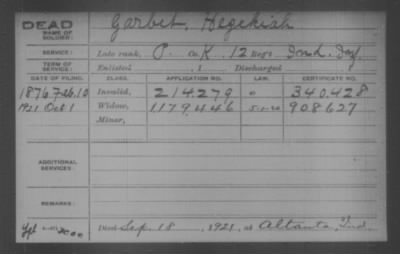 DEAD
NAME OF SOLDIER: Garbet, Hezekiah
SERVICE: Late rank, P. Co. K, 12 Reg't Ind. Inf.
TERM OF SERVICE: Enlisted , 1 Discharged
DATE OF FILING. CLASS. APPLICATION NO. LAW. CERTIFICATE NO.
1876 Feb. 10 Invalid, 214.279 0 340.428
1921 Oct 1 Widow, 1179.446 5-1-20 908627
Minor,
ADDITIONAL SERVICES:
REMARKS:
Died Sep. 18, 1921, at Altanta, Ind.